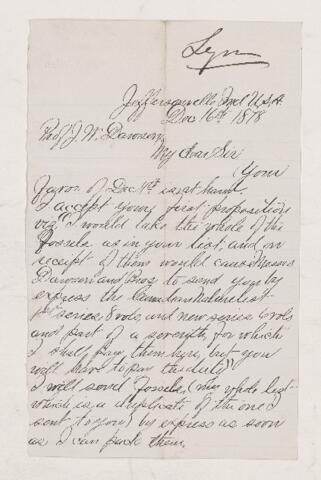 Lyon
Jeffersonville Ind U.S.A.
Dec 16th 1878
Prof J. W. Dawson,
My dear Sir
Your
favor of Dec 11th is at hand.
I accept your first proposition
viz: "I would take the whole of the
fossils as in your list, and on
receipt of them would cause Messrs
Dawson and Bros to send you by
express the Canadian Naturalist
1st series 8 vols, and new series 6 vols
and part of a seventh, for which
I shall pay them here, but you
will have to pay the duty"
I will send fossils, (my whole list
which is a duplicate of the one I
sent to you) by express as soon
as I can pack them.